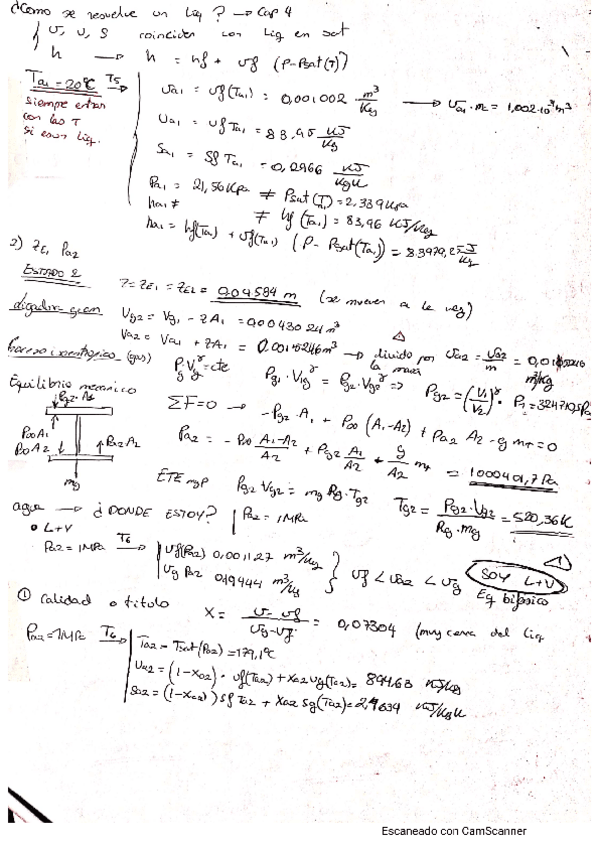 ¿Como se resuelve un Liq? → Cap 4
v, u, s coinciden con Liq en sat
h → h = hf + vf (P-Psat(T))
Ta1 = 20ºC T5 →
siempre entras
con las T
si eres liq.
va1 = vf(Ta1) = 0,001002 m³/Kg → va1 · m
ua1 = uf Ta1 = 83,95 KJ/Kg
Sa1 = Sf Ta1 = 0,2966 KJ/KgK
Pa1 = 21,56 KPa ≠ Psat(T) = 2,339 Kpa
ha1 ≠
≠ hf (Ta1) = 83,96 KJ/Kg
ha1 = hf(Ta1) + vf(Ta1) (P - Psat(Ta1)) =
2) zE, Pa2
ESTADO 2
z = zE1 = zE2 = 0,04584 m (se mueven a la vez)
Vg2 = Vg1 - zA1 = 0,0043024 m³
Va2 = Va1 + zA1 = → divido por la masa va2 = Va2/m =
m³/Kg
Proceso isentrópico (gas) Pg·Vg^γ = cte
Pg1 · V1g^γ = Pg2 · Vg2^γ => Pg2 = (V1/V2)^γ · P1 =
Equilibrio mecanico
Pg2·A1
P∞A1
P∞A2
Pa2 A2
mg
ΣF=0 → -Pg2·A1 + P∞ (A1-A2) + Pa2 A2 - g mT = 0
Pa2 = - P∞ (A1-A2)/A2 + Pg2 A1/A2 + g/A2 mT = 1000401,7 Pa
ETE mgp Pg2 Vg2 = mg Rg · Tg2 Tg2 = Pg2·Vg2/Rg·mg = 520,36 K
agua → ¿DONDE ESTOY? | Pa2 = 1 MPa
o L+V
Pa2 = 1 MPa T6 →
vf(Pa2) 0,001127 m³/Kg
vg Pa2 0,19444 m³/Kg
vf < va2 < vg
SOY L+V
Eq bifásico
① Calidad o titulo X = (v - vf)/(vg-vf) = 0,07304 (muy cerca del liq
Pa2 = 1 MPa T6 →
Ta2 = Tsat(Pa2) = 179,1ºC
ua2 = (1-xa2) · uf(Ta2) + xa2 ug(Ta2) = 894,63 KJ/Kg
Sa2 = (1-xa2) sf Ta2 + xa2 sg(Ta2) = KJ/KgK
Escaneado con CamScanner